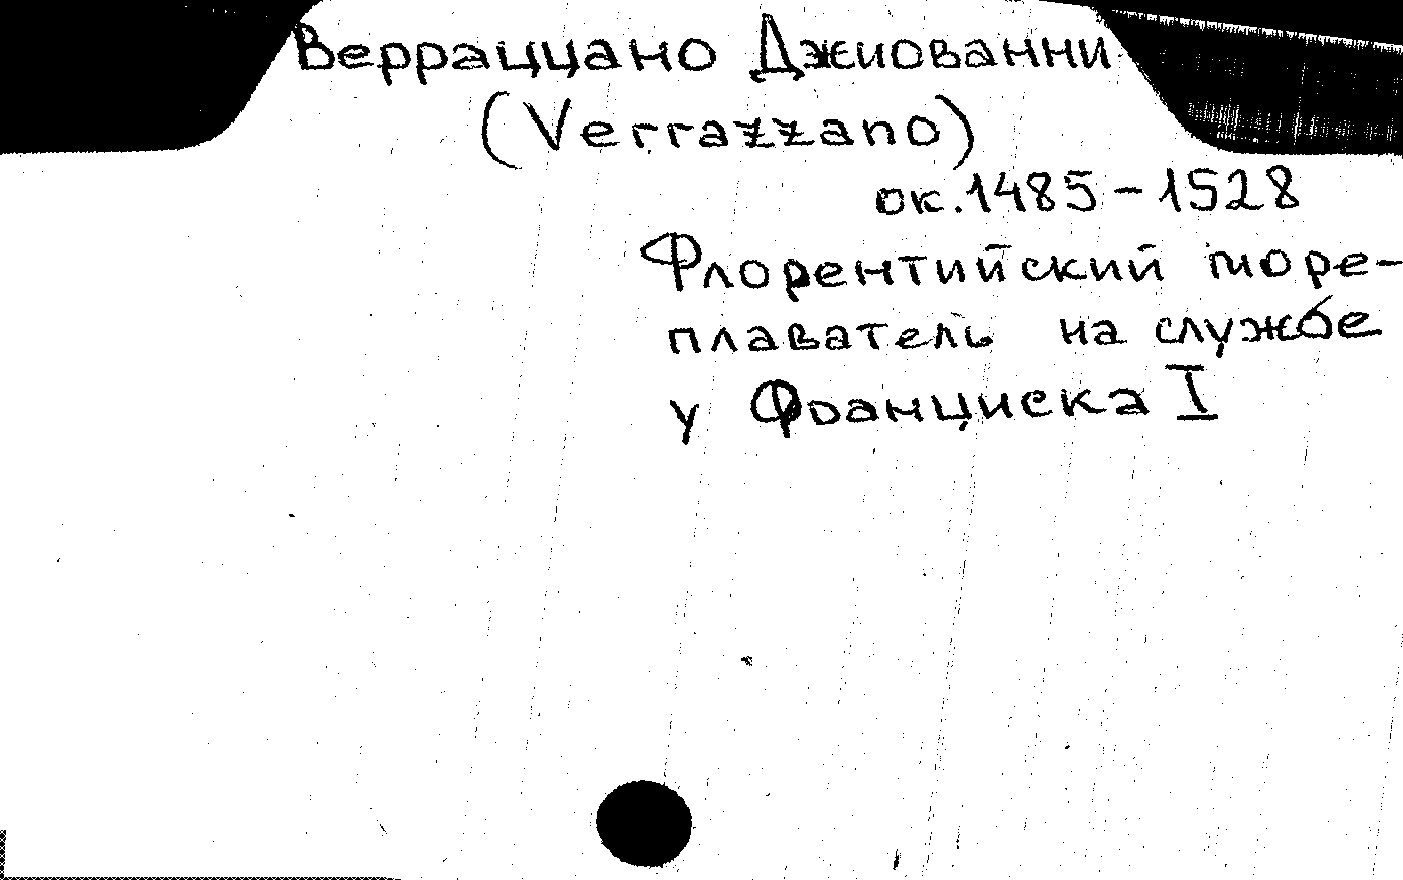 Верраццано Джиованни
(Verrazzano)
ок. 1485 - 1528
Флорентийский море-
плаватель на службе
у Франциска I